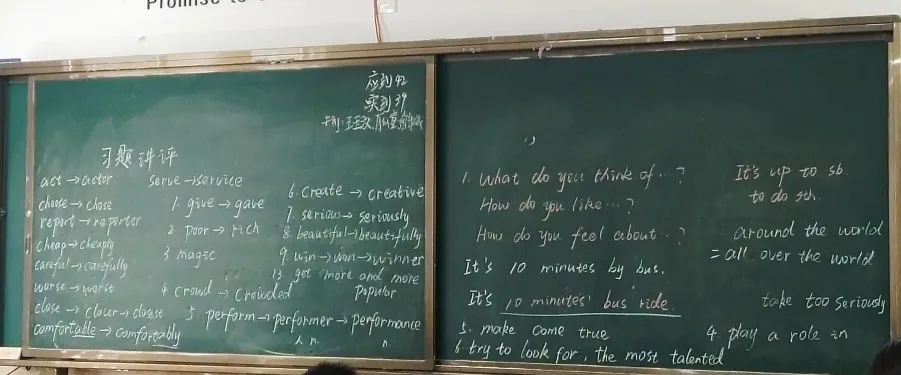 Promise to
应到42
实到39
习题讲评
act → actor
choose → chose
report → reporter
cheap → cheaply
careful → carefully
worse → worst
close → closer → closest
comfortable → comfortably
serve → service
1. give → gave
2 poor → rich
3 magic
4 crowd → crowded
5. perform → performer → performance
人 n. n.
6. create → creative
7. serious → seriously
8. beautiful → beautifully
9. win → won → winner
13 get more and more
popular
1. What do you think of …?
How do you like …?
How do you feel about …?
It's 10 minutes by bus.
It's 10 minutes' bus ride.
5. make come true
6. try to look for, the most talented
It's up to sb.
to do sth.
around the world
= all over the world
take too seriously
4. play a role in